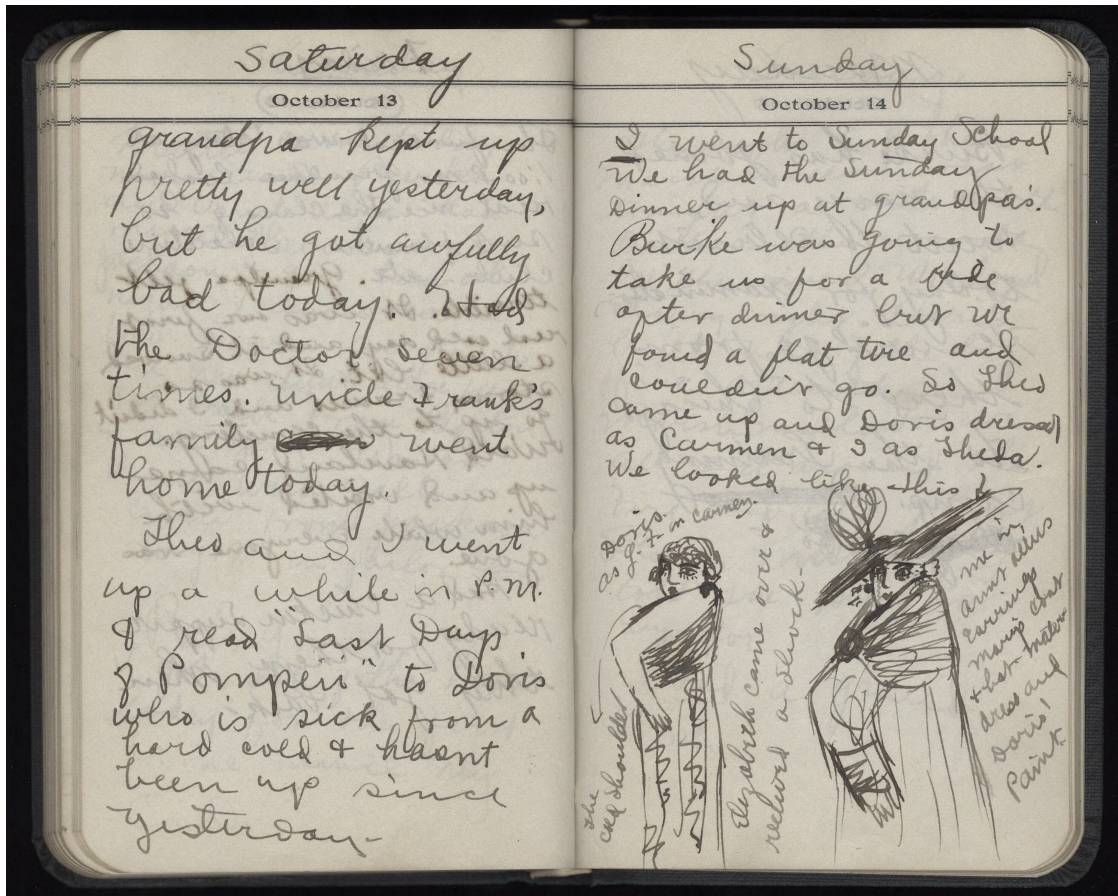 Saturday
October 13
grandpa kept up
pretty well yesterday,
but he got awfully
bad today. Had
the Doctor seven
times. Uncle Frank's
family went
home today.
Theo and I went
up a while in P.M.
I read "Last Days
of Pompeii" to Doris
who is sick from a
hard cold & hasnt
been up since
yesterday-
Sunday
October 14
I went to Sunday School
We had the Sunday
Dinner up at grandpa's.
Burke was going to
take us for a ride
after dinner but we
found a flat tire and
couldn't go. So Theo
came up and Doris dressed
as Carmen & I as Theda.
We looked like this!
Doris.
as G. F. in Carmen.
the
cold shoulder
Elizabeth came over &
me in
aunt
earrings
coat
& hat mater
dress and
Doris'
Paint